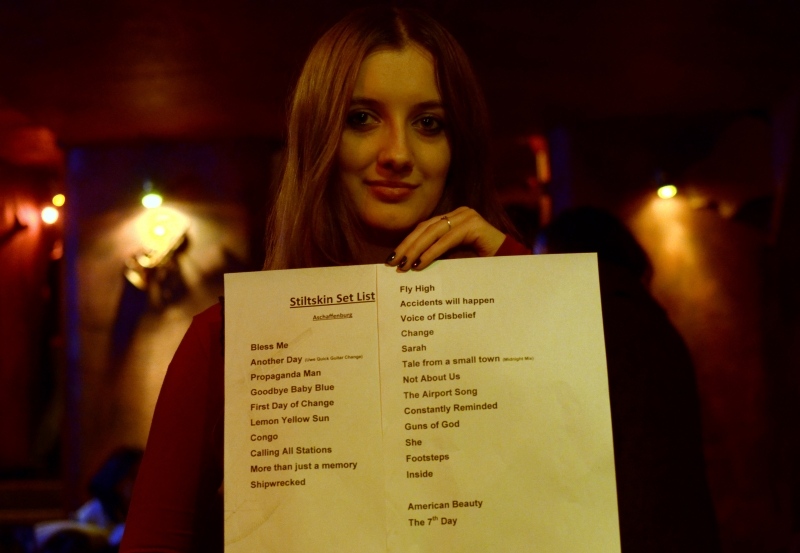 Stiltskin Set List
Aschaffenburg
Bless Me
Another Day
Propaganda Man
Goodbye Baby Blue
First Day of Change
Lemon Yellow Sun
Congo
Calling All Stations
More than just a memory
Shipwrecked
Fly High
Accidents will happen
Voice of Disbelief
Change
Sarah
Tale from a small town (Midnight Mix)
Not About Us
The Airport Song
Constantly Reminded
Guns of God
She
Footsteps
Inside
American Beauty
The 7th Day